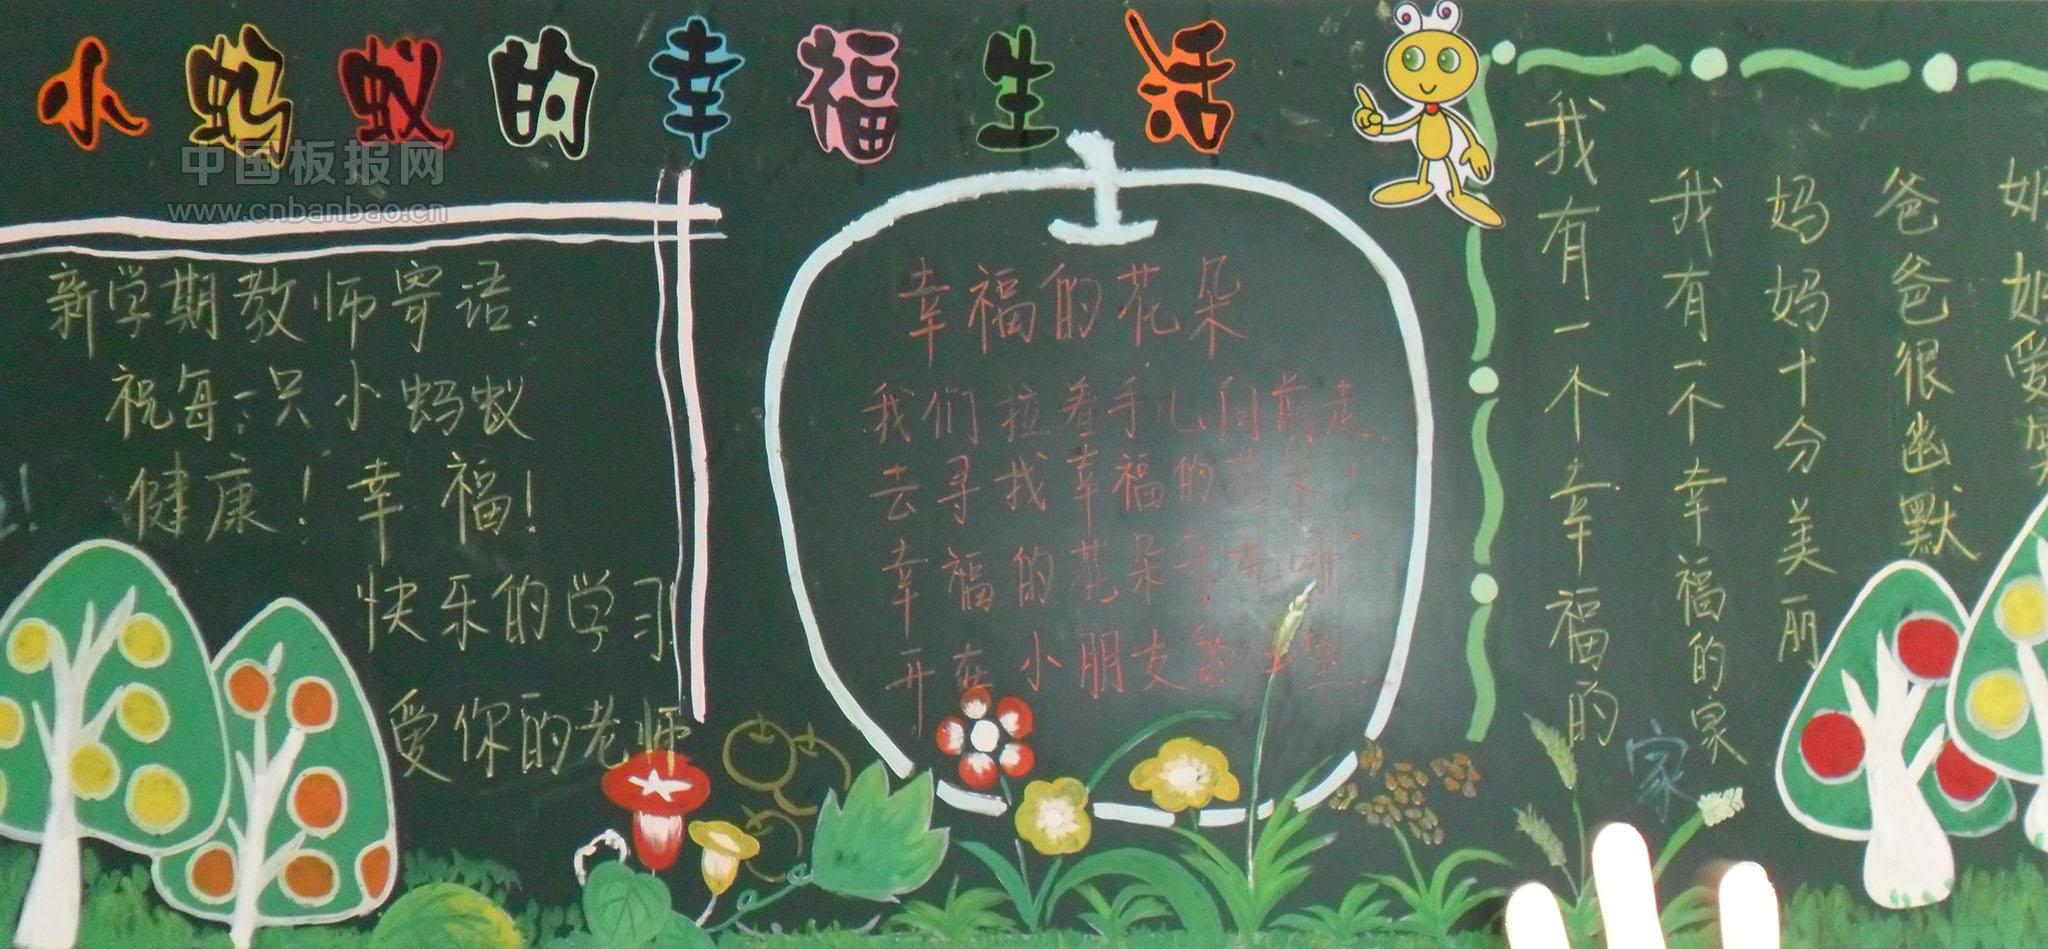 小蚂蚁的幸福生活
中国板报网
www.cnbanbao.cn
新学期教师寄语:
祝每一只小蚂蚁
健康！幸福！
快乐的学习
爱你的老师
幸福的花朵
我们拉着手儿向前走
去寻找幸福的花朵
幸福的花朵
开在小朋友的心里
我有一个幸福的
家
我有一个幸福的家
妈妈十分美丽
爸爸很幽默